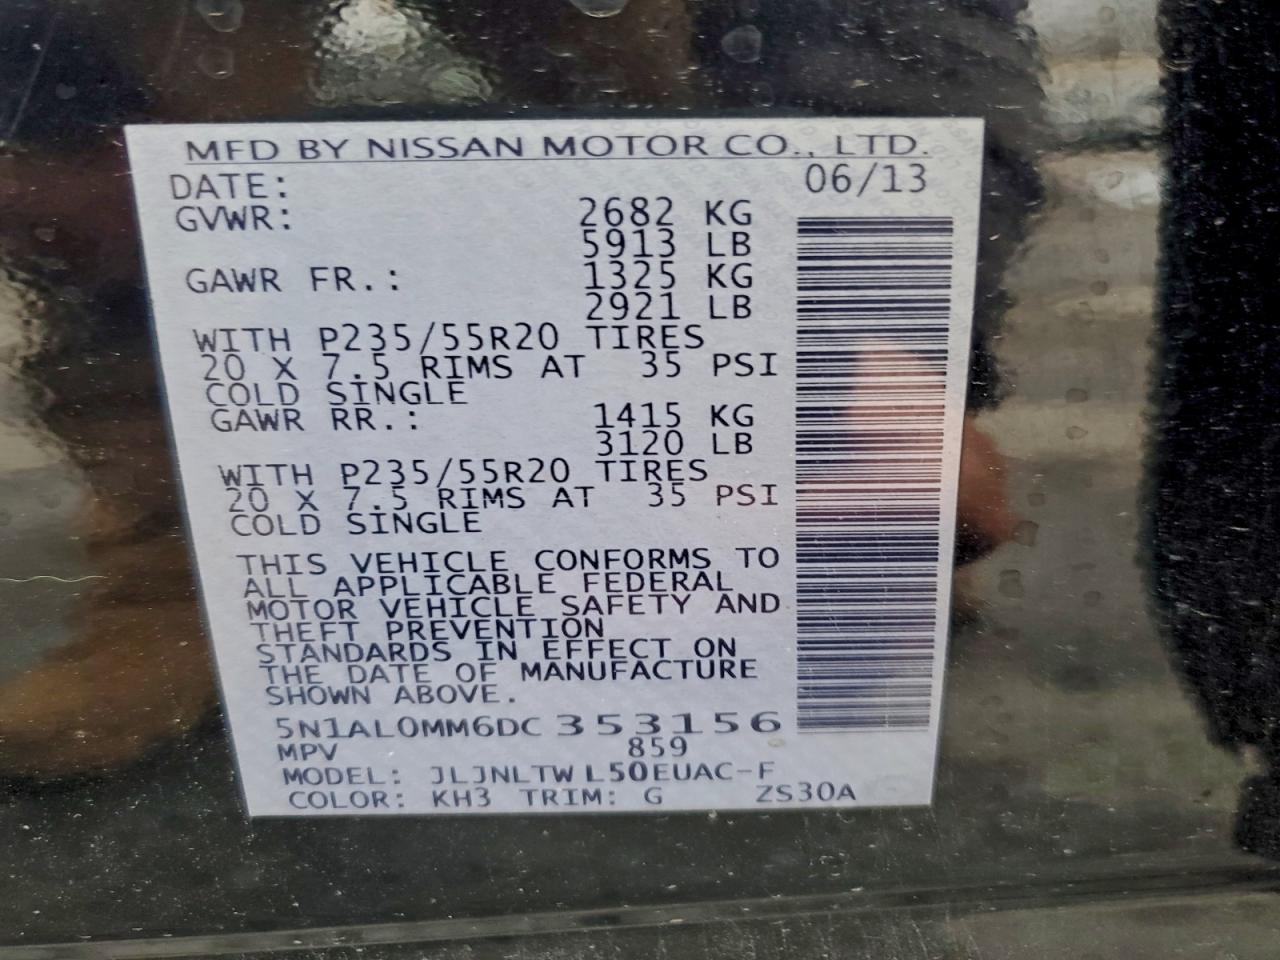 MFD BY NISSAN MOTOR CO., LTD.
DATE: 06/13
GVWR: 2682 KG
5913 LB
GAWR FR.: 1325 KG
2921 LB
WITH P235/55R20 TIRES
20 X 7.5 RIMS AT 35 PSI
COLD SINGLE
GAWR RR.: 1415 KG
3120 LB
WITH P235/55R20 TIRES
20 X 7.5 RIMS AT 35 PSI
COLD SINGLE
THIS VEHICLE CONFORMS TO
ALL APPLICABLE FEDERAL
MOTOR VEHICLE SAFETY AND
THEFT PREVENTION
STANDARDS IN EFFECT ON
THE DATE OF MANUFACTURE
SHOWN ABOVE.
5N1AL0MM6DC 353156
MPV 859
MODEL: JLJNLTW L50EUAC-F
COLOR: KH3 TRIM: G ZS30A